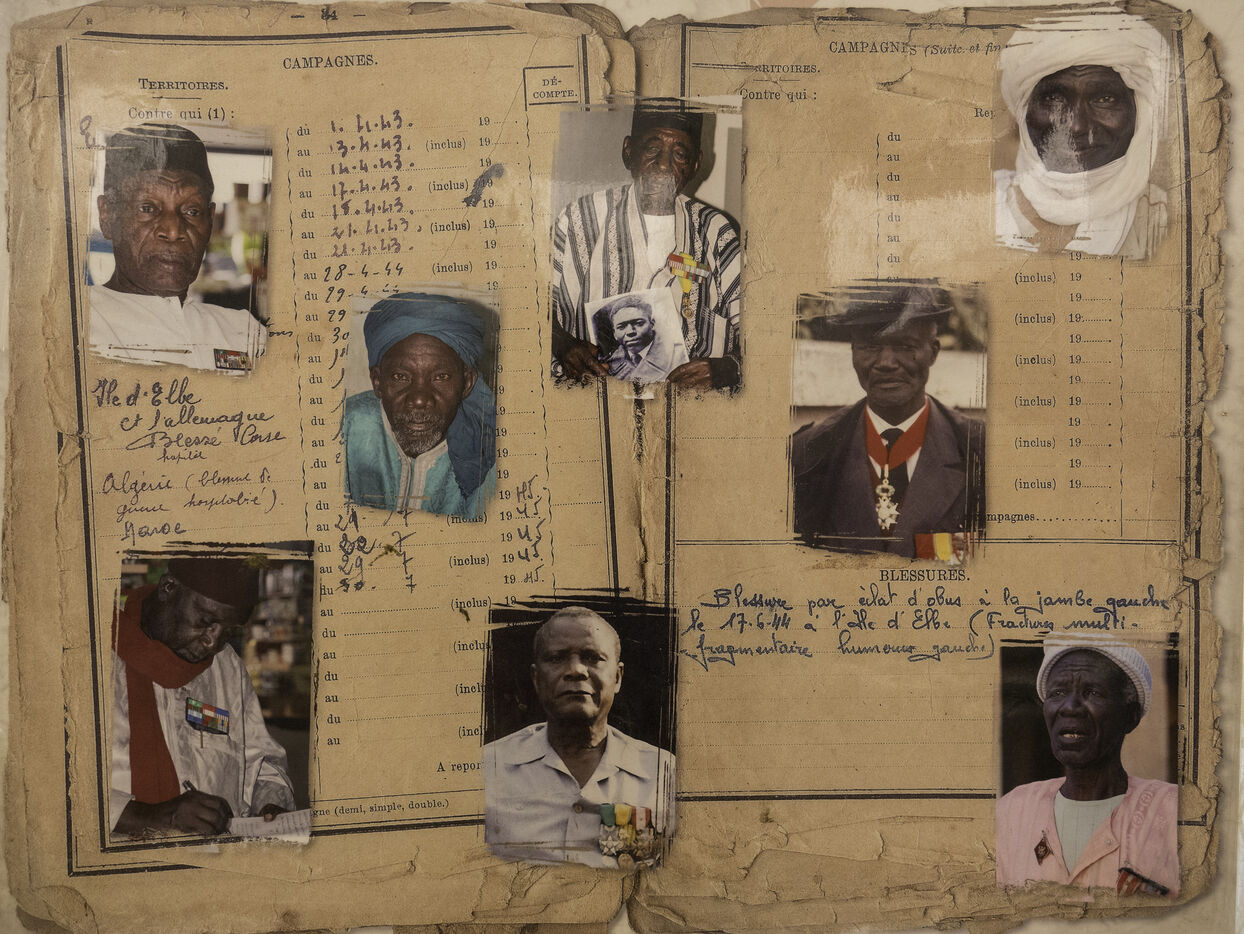 — 84 —
CAMPAGNES.
TERRITOIRES.
DÉ-
COMPTE.
Contre qui (1) :
du 1.4.43. 19
au 13.4.43. (inclus) 19
du 14.4.43. 19
au 17.4.43. (inclus) 19
du 18.4.43. 19
au 21.4.43. (inclus) 19
du 21.4.43. 19
au 28-4-44 (inclus) 19
du 29-4-44
au 29
du 30
au
du
au
du
au
du
Ile d'Elbe
et l'allemagne
Blessé Corse
Algérie (blessure de
guerre hospitalisé)
Maroc
du 45.
au 29. 7 (inclus) 19 45
du 7 19 45
au 29 7 (inclus) 19 45
du 30. 7 19 45.
au (inclus) 19
du 19
au (inclus
du
au (inclu
du
au (incl
du
au
A repor
gne (demi, simple, double.)
CAMPAGNES (Suite et fin
RRITOIRES.
Contre qui :
Rep
du
au
du
au
du
au
du 19
au (inclus) 19
du 19
(inclus) 19
19
(inclus) 19
19
(inclus) 19
19
(inclus) 19
19
(inclus) 19
ampagnes
BLESSURES.
Blessure par éclat d'obus à la jambe gauche
le 17-6-44 à l'Ile d'Elbe (Fractures multi-
-fragmentaire humerus gauche)